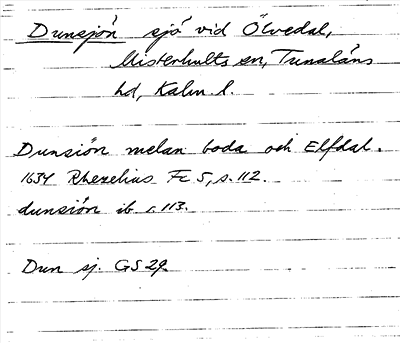 Dunsjön sjö vid Ölvedal,
Misterhults sn, Tunaläns
hd, Kalm. l.
Dunsiön melan boda och Elfdal.
1634 Rhezelius Fc 5, s. 112.
dunsiön ib. s. 113.
Dun sj. GS 29